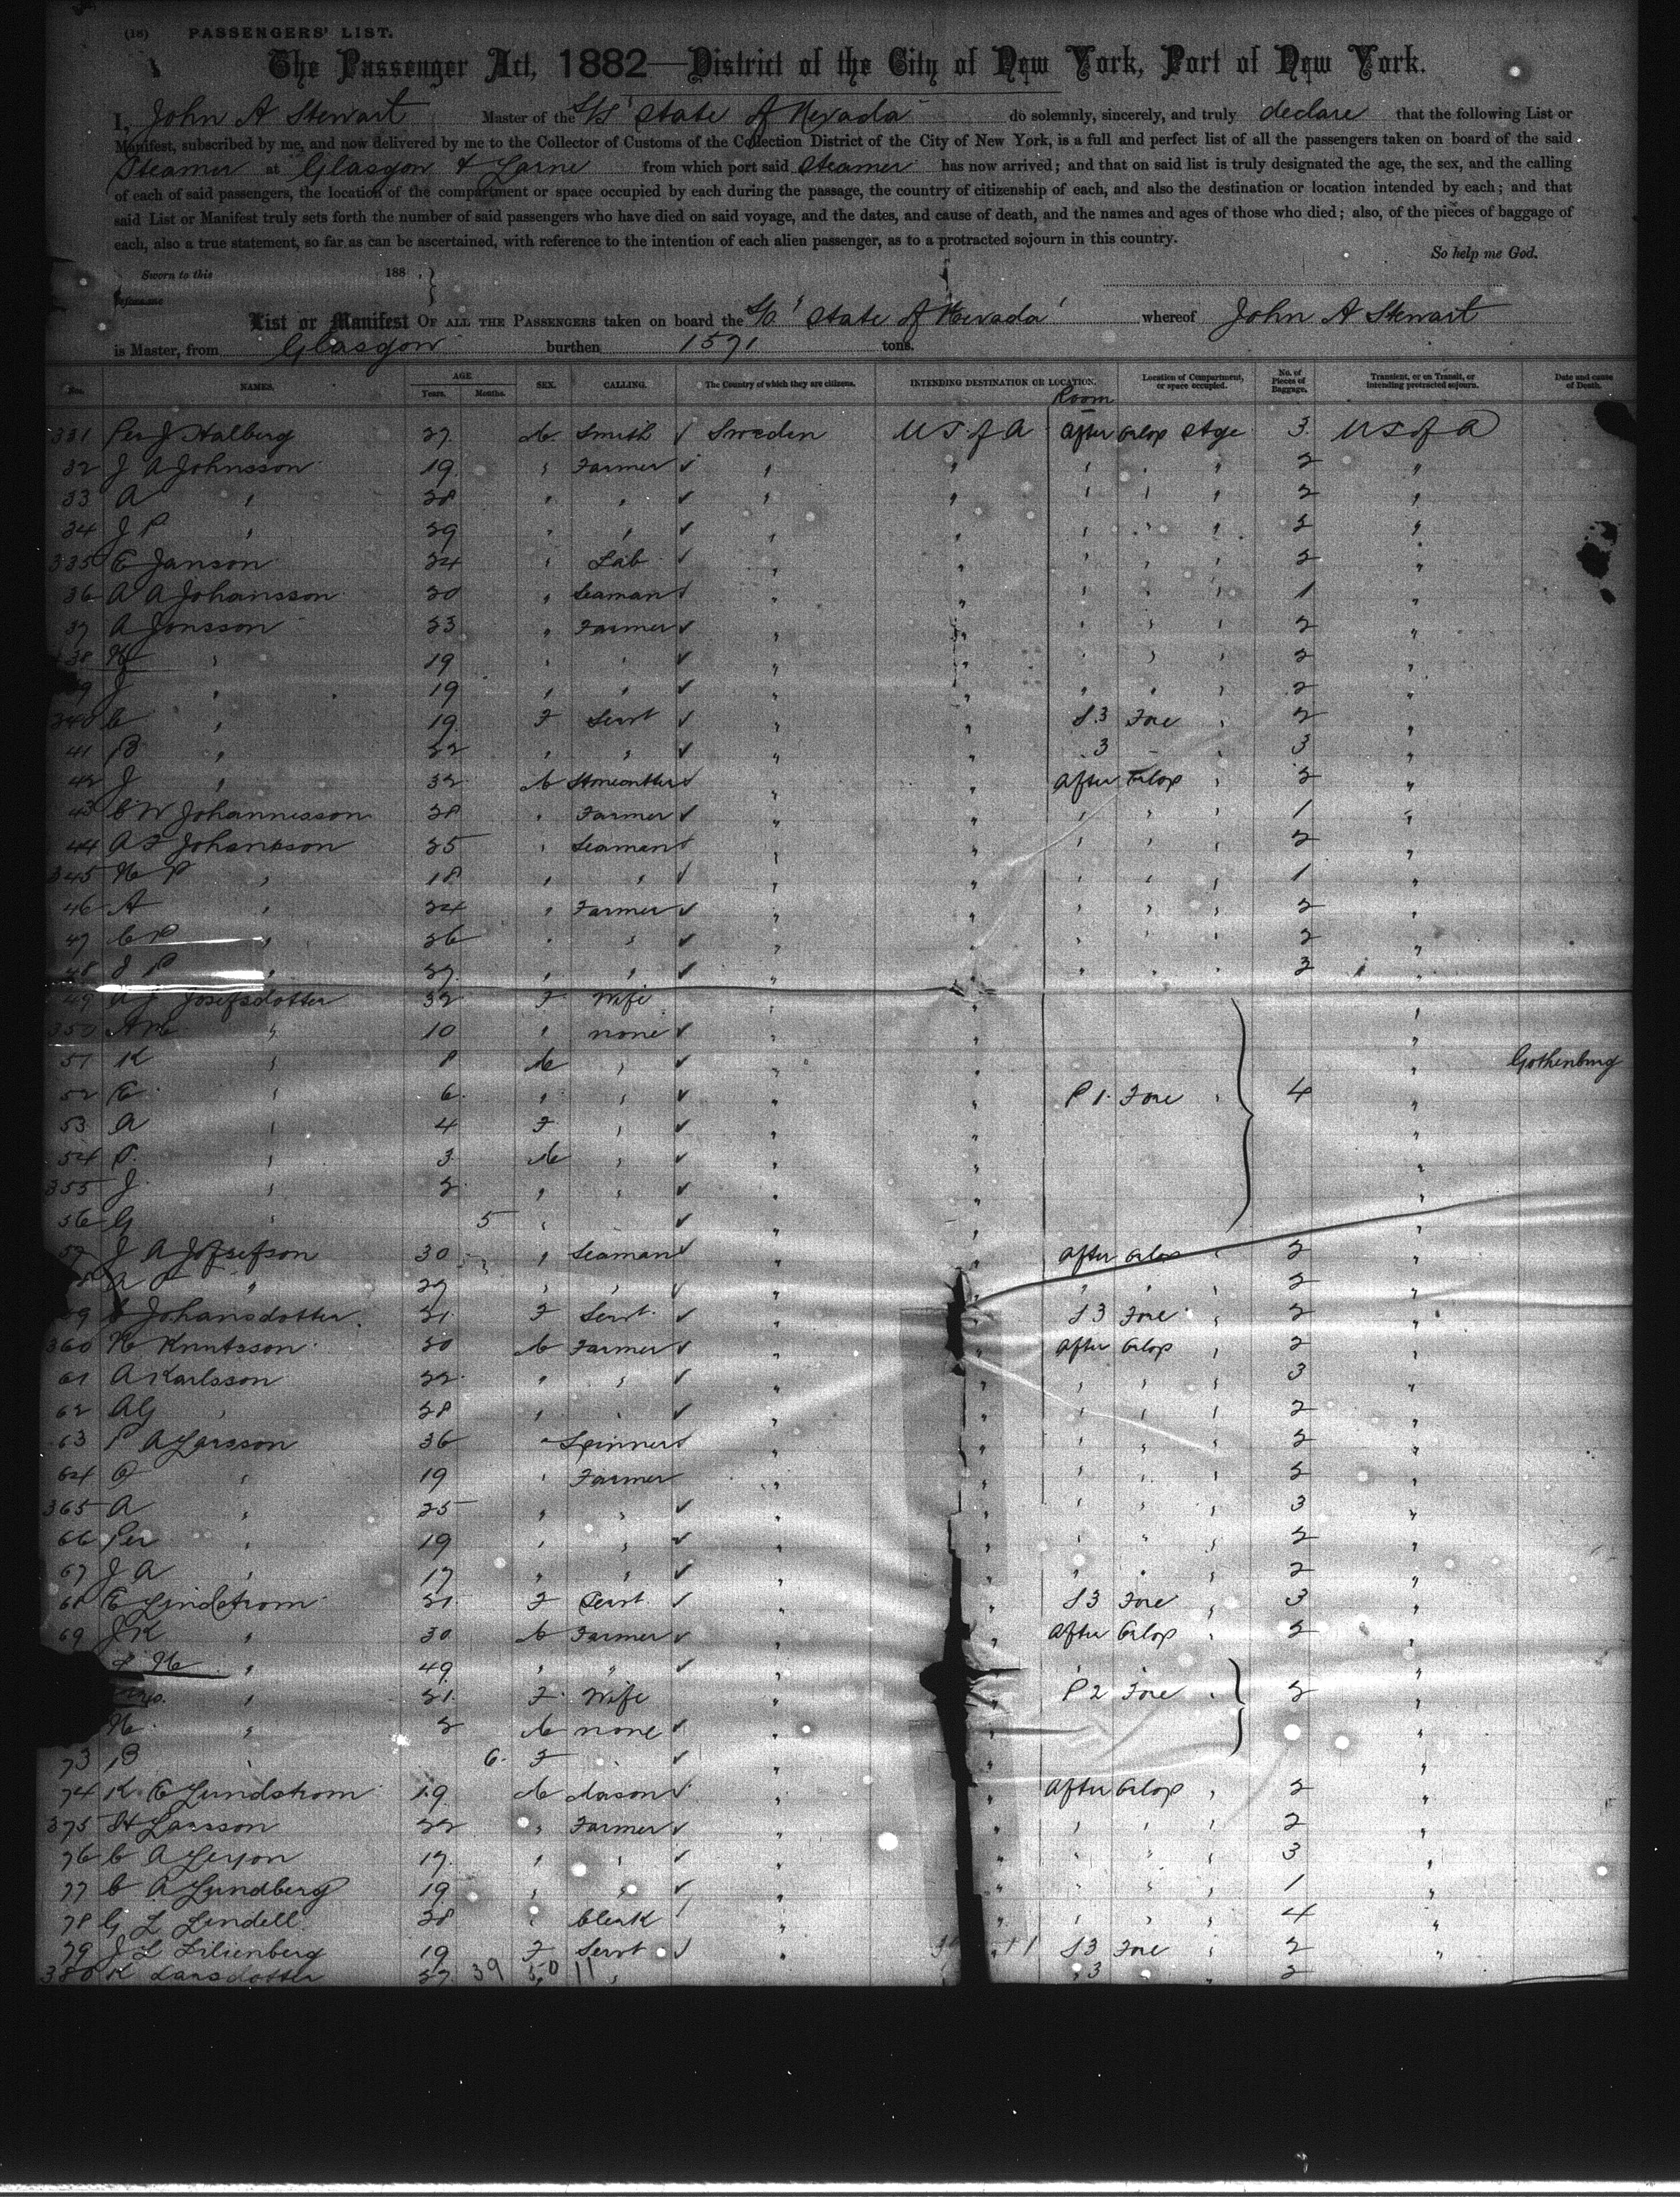 (18) PASSENGERS' LIST.
The Passenger Act, 1882—District of the City of New York, Port of New York.
I, John A Stewart Master of the S/S 'State of Nevada' do solemnly, sincerely, and truly declare that the following List or
Manifest, subscribed by me, and now delivered by me to the Collector of Customs of the Collection District of the City of New York, is a full and perfect list of all the passengers taken on board of the said
Steamer at Glasgow & Larne from which port said Steamer has now arrived; and that on said list is truly designated the age, the sex, and the calling
of each of said passengers, the location of the compartment or space occupied by each during the passage, the country of citizenship of each, and also the destination or location intended by each; and that
said List or Manifest truly sets forth the number of said passengers who have died on said voyage, and the dates, and cause of death, and the names and ages of those who died; also, of the pieces of baggage of
each, also a true statement, so far as can be ascertained, with reference to the intention of each alien passenger, as to a protracted sojourn in this country.
So help me God.
Sworn to this 188
before me
List or Manifest OF ALL THE PASSENGERS taken on board the S/S 'State of Nevada' whereof John A Stewart
is Master, from Glasgow burthen 1571 tons.
Nos. NAMES. AGE. Years. Months. SEX. CALLING. The Country of which they are citizens. INTENDING DESTINATION OR LOCATION. Location of Compartment, or space occupied. No. of Pieces of Baggage. Transient, or on Transit, or intending protracted sojourn. Date and cause of Death.
Room
331 Per J Halberg 27 M Smith ✓ Sweden U S of A After Orlop Stge 3 U S of A
32 J A Johnsson 19 " Farmer ✓ " " " " " 2 "
33 A " 28 " " ✓ " " " " " 2 "
34 J P " 29 " " ✓ " " " " " 2 "
335 E Janson 24 " Lab ✓ " " " " " 2 "
36 A A Johansson 20 " Seaman ✓ " " " " " 1 "
37 A Jonsson 23 " Farmer ✓ " " " " " 2 "
38 N " 19 " " ✓ " " " " " 2 "
39 J " 19 " " ✓ " " " " " 2 "
340 C " 19 F Servt ✓ " " S 3 Fore " 2 "
41 B " 22 " " ✓ " " 3 " " 3 "
42 J " 32 M Stonecutter ✓ " " After Orlop " 2 "
43 C W Johannesson 28 " Farmer ✓ " " " " " 1 "
44 A F Johansson 25 " Seaman ✓ " " " " " 2 "
345 N P " 18 " " ✓ " " " " " 1 "
46 A " 24 " Farmer ✓ " " " " " 2 "
47 C P " 26 " " ✓ " " " " " 2 "
48 J P " 27 " " ✓ " " " " " 3 "
49 A J Josefsdotter 32 F Wife " " "
350 A M " 10 " none ✓ " " "
51 K " 8 M " ✓ " " " Gothenburg
52 E " 6 " " ✓ " " P 1 Fore " 4 "
53 A " 4 F " ✓ " " "
54 P " 3 M " ✓ " " "
355 J " 2 " " ✓ " " "
56 G " 5 " ✓ " " "
57 J A Jofsefson 30 " Seaman ✓ " " After Orlop " 2 "
A P " 27 " " ✓ " " " " 2 "
59 Johansdotter 21 F Servt ✓ " " S 3 Fore " 2 "
360 N Knutsson 20 M Farmer ✓ " " After Orlop " 2 "
61 A Karlsson 22 " " ✓ " " " " " 3 "
62 A G " 28 " " ✓ " " " " " 2 "
63 P A Larsson 36 " Spinner ✓ " " " " " 2 "
64 O " 19 " Farmer " " " " " 2 "
365 A " 25 " " ✓ " " " " " 3 "
66 Per " 19 " " ✓ " " " " " 2 "
67 J A " 17 " " ✓ " " " " 2 "
68 E Lindstrom 21 F Servt ✓ " " S 3 Fore " 3 "
69 J K " 30 M Farmer ✓ " " After Orlop " 2 "
N " 49 " " ✓ " " " " "
" 21 F Wife " " P 2 Fore " 2 "
N " 2 M none ✓ " " "
73 B " 6 F " ✓ " " "
74 K E Lundstrom 19 M Mason ✓ " " After Orlop " 2 "
375 H Larsson 22 " Farmer ✓ " " " " " 2 "
76 C A Lexon 17 " " ✓ " " " " " 3 "
77 C A Lundberg 19 " " ✓ " " " " " 1 "
78 G L Lindell 28 " Clerk " " " " " 4 "
79 J L Lilienberg 19 F Servt ✓ " S 3 Fore " 2 "
380 K Larsdotter 27 39 50 11 " 3 " 2